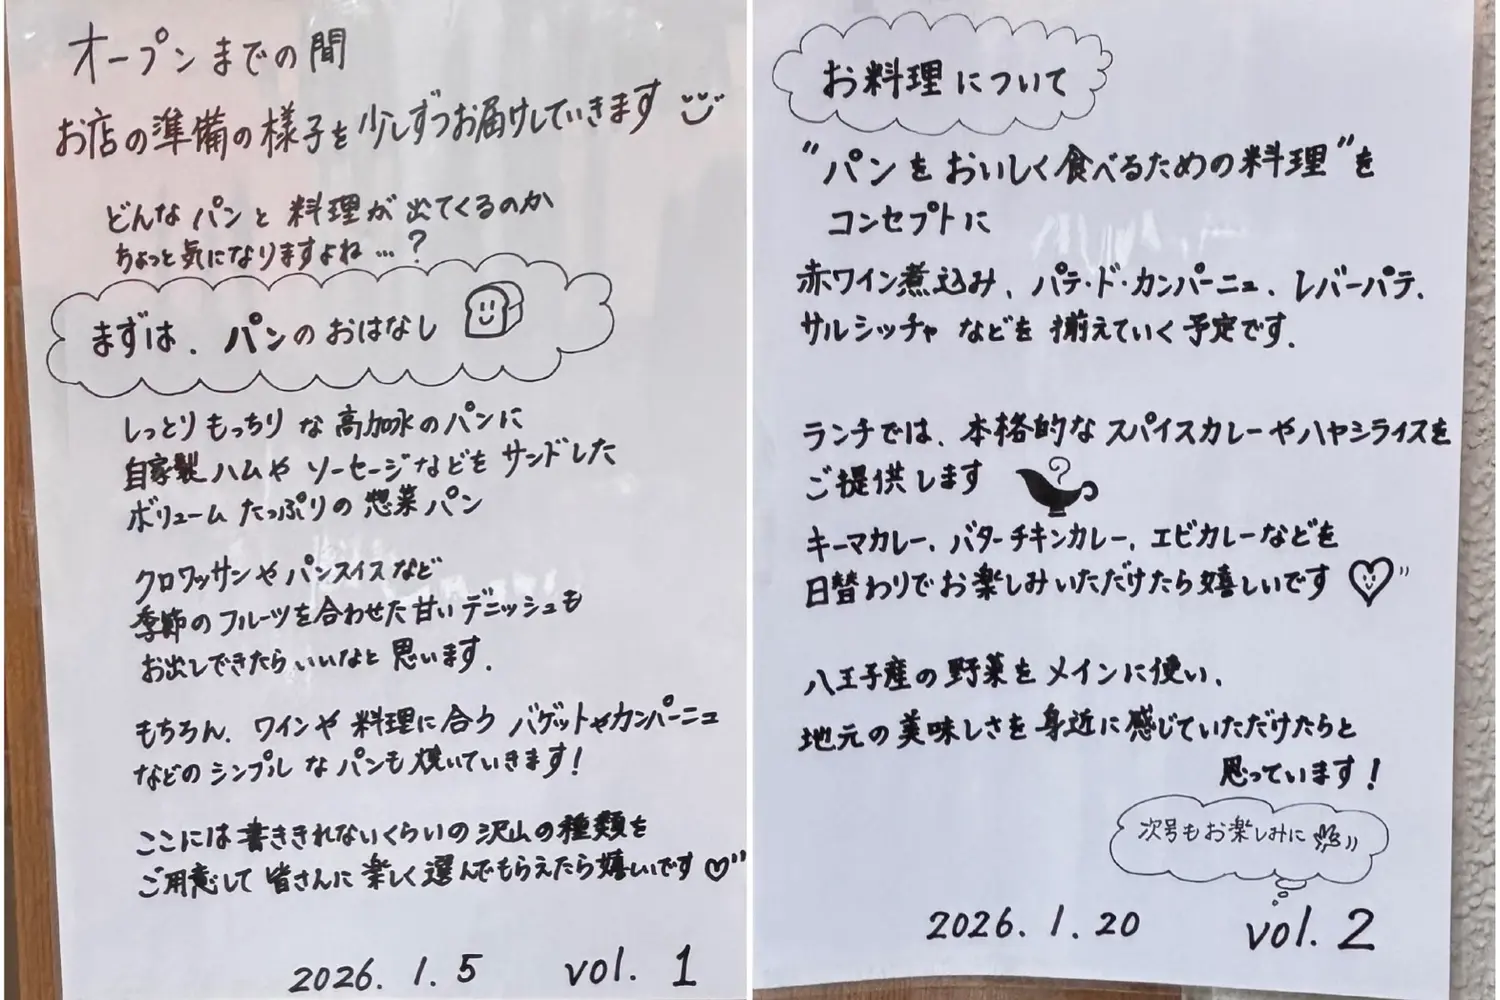 オープンまでの間
お店の準備の様子を少しずつお届けしていきます
どんなパンと料理が出てくるのか
ちょっと気になりますよね…?
まずは、パンのおはなし
しっとりもっちりな高加水のパンに
自家製ハムやソーセージなどをサンドした
ボリュームたっぷりの惣菜パン
クロワッサンやパンスイスなど
季節のフルーツを合わせた甘いデニッシュも
お出しできたらいいなと思います.
もちろん、ワインや料理に合うバゲットやカンパーニュ
などのシンプルなパンも焼いていきます!
ここには書ききれないくらいの沢山の種類を
ご用意して皆さんに楽しく選んでもらえたら嬉しいです♡
2026. 1. 5 vol. 1
お料理について
"パンをおいしく食べるための料理"を
コンセプトに
赤ワイン煮込み、パテ・ド・カンパーニュ、レバーパテ、
サルシッチャなどを揃えていく予定です.
ランチでは、本格的なスパイスカレーやハヤシライスを
ご提供します
キーマカレー、バターチキンカレー、エビカレーなどを
日替わりでお楽しみいただけたら嬉しいです
八王子産の野菜をメインに使い、
地元の美味しさを身近に感じていただけたらと
思っています!
次号もお楽しみに
2026. 1. 20 vol. 2